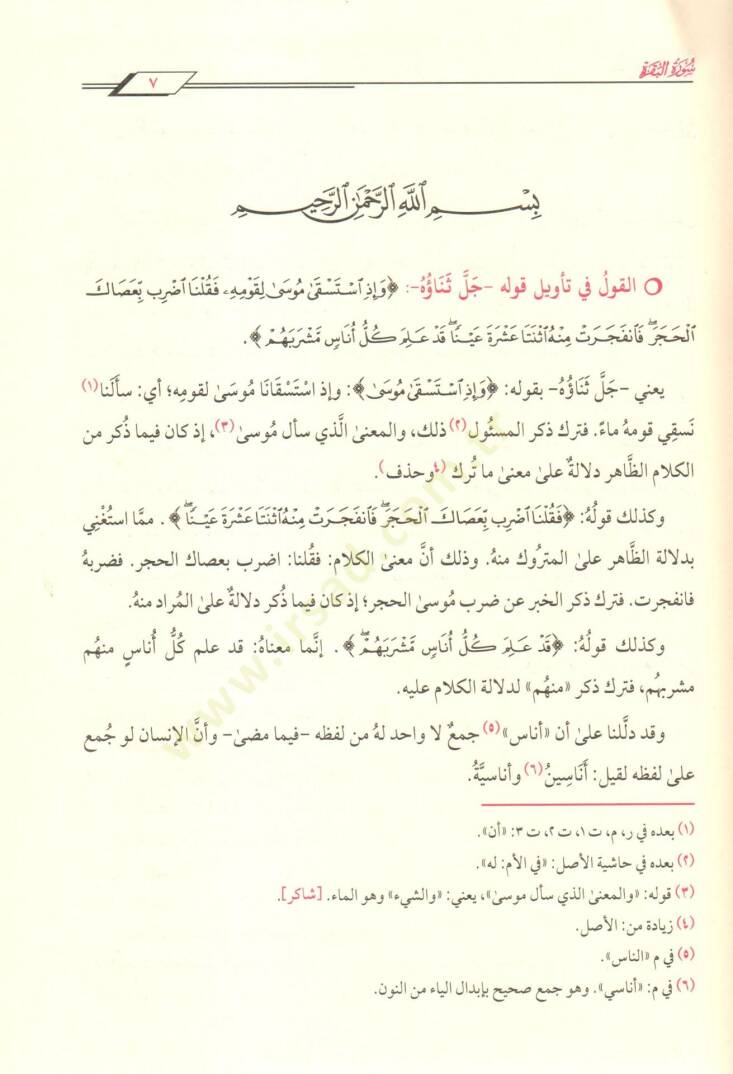 سُورَةُ البَقَرَةِ
٧
بِسْمِ ٱللَّهِ ٱلرَّحْمَٰنِ ٱلرَّحِيمِ
القولُ في تأويل قوله -جَلَّ ثَنَاؤُهُ-: ﴿وَإِذِ ٱسْتَسْقَىٰ مُوسَىٰ لِقَوْمِهِۦ فَقُلْنَا ٱضْرِب بِّعَصَاكَ
ٱلْحَجَرَ ۖ فَٱنفَجَرَتْ مِنْهُ ٱثْنَتَا عَشْرَةَ عَيْنًا ۖ قَدْ عَلِمَ كُلُّ أُنَاسٍ مَّشْرَبَهُمْ﴾.
يعني -جَلَّ ثَنَاؤُهُ- بقوله: ﴿وَإِذِ ٱسْتَسْقَىٰ مُوسَىٰ﴾: وإذ اسْتَسْقَانَا مُوسَىٰ لقومِه؛ أي: سأَلَنا(١)
نَسقِي قومهُ ماءً. فترك ذكر المسئُول(٢) ذلك، والمعنىٰ الَّذي سأل مُوسىٰ(٣)، إذ كان فيما ذُكر من
الكلام الظَّاهر دلالةٌ علىٰ معنىٰ ما تُرك (٤وحذف).
وكذلك قولُهُ: ﴿فَقُلْنَا ٱضْرِب بِّعَصَاكَ ٱلْحَجَرَ ۖ فَٱنفَجَرَتْ مِنْهُ ٱثْنَتَا عَشْرَةَ عَيْنًا ۖ﴾. ممَّا استُغْنِي
بدلالة الظَّاهر علىٰ المترُوك منهُ. وذلك أنَّ معنىٰ الكلام: فقُلنا: اضرب بعصاك الحجر. فضربهُ
فانفجرت. فترك ذكر الخبر عن ضرب مُوسىٰ الحجر؛ إذ كان فيما ذُكر دلالةٌ علىٰ المُراد منهُ.
وكذلك قولُهُ: ﴿قَدْ عَلِمَ كُلُّ أُنَاسٍ مَّشْرَبَهُمْ ۖ﴾. إنَّما معناهُ: قد علم كُلُّ أُناسٍ منهُم
مشربهُم، فترك ذكر «منهُم» لدلالة الكلام عليه.
وقد دلَّلنا علىٰ أن «أناس»(٥) جمعٌ لا واحد لهُ من لفظه -فيما مضىٰ- وأنَّ الإنسان لو جُمع
علىٰ لفظه لقيل: أَنَاسِينُ(٦) وأناسيَّةُ.
(١) بعده في ر، م، ت ١، ت ٢، ت ٣: «أن».
(٢) بعده في حاشية الأصل: «في الأم: له».
(٣) قوله: «والمعنىٰ الذي سأل موسىٰ»، يعني: «والشيء» وهو الماء. [شاكر].
(٤) زيادة من: الأصل.
(٥) في م «الناس».
(٦) في م: «أناسي». وهو جمع صحيح بإبدال الياء من النون.
www.irsad.com.tr